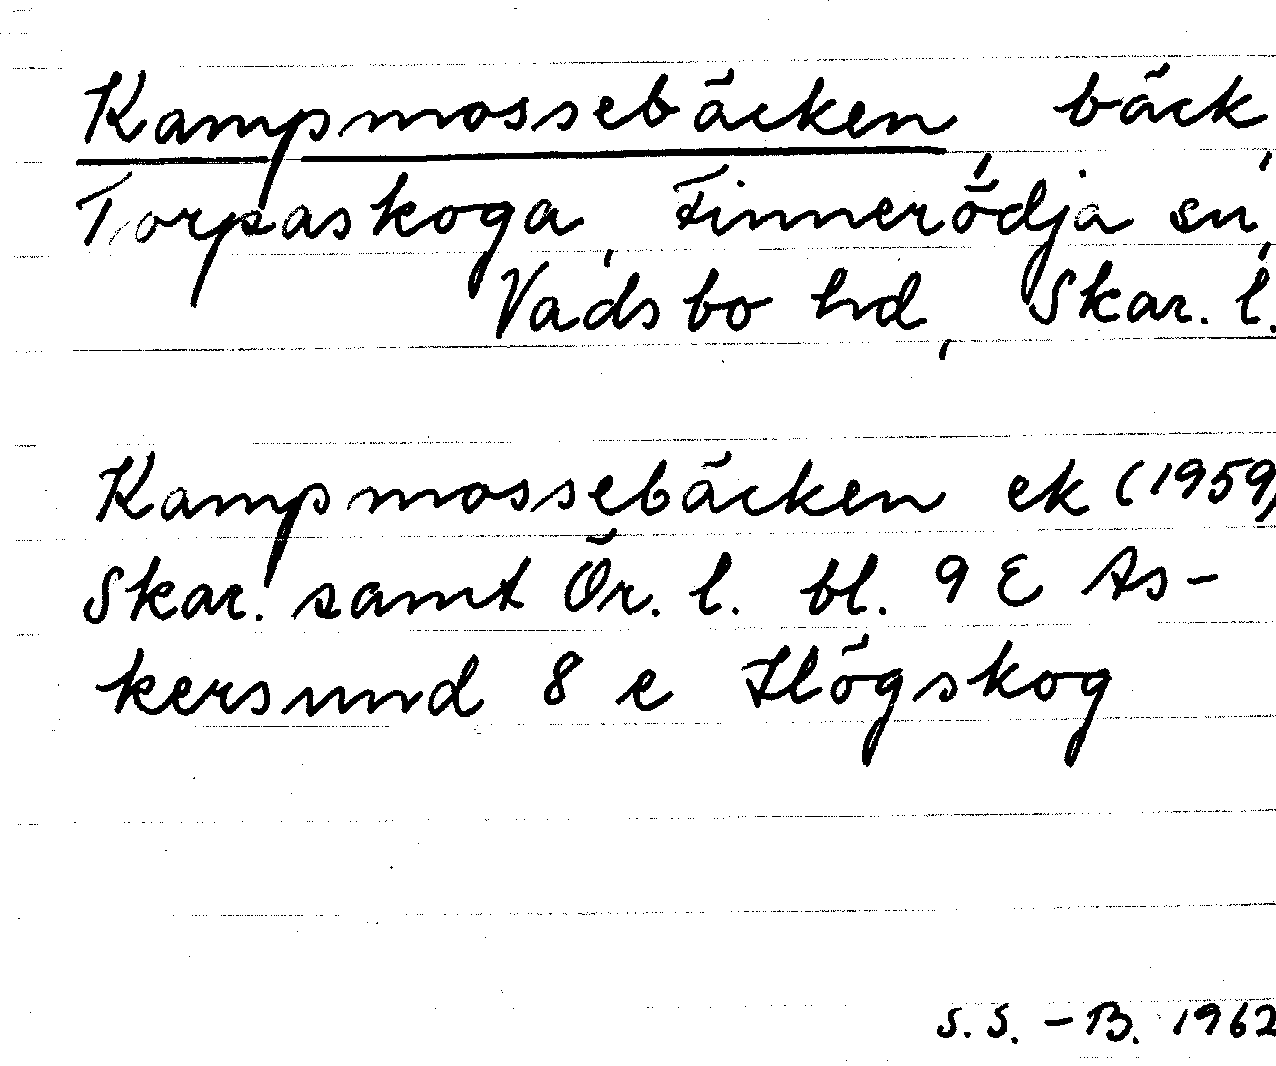 Kampmossebäcken, bäck,
Torpaskoga, Finnerödja sn,
Vadsbo hd, Skar. l.
Kampmossebäcken ek (1959)
Skar. samt Ör. l. bl. 9 E As-
kersund 8 e Högskog
S. S. - B. 1962